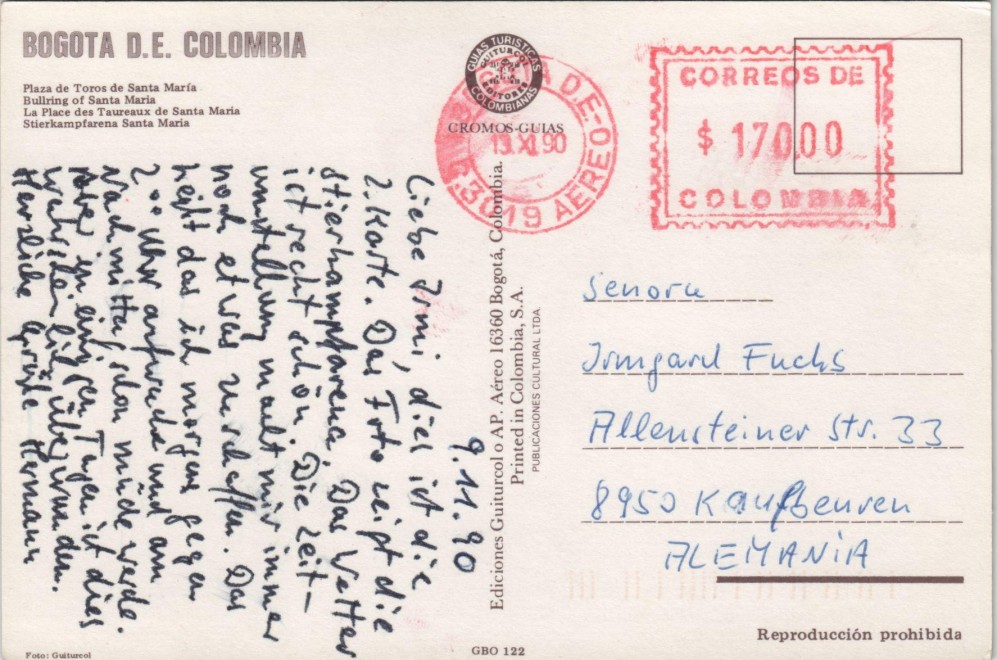 BOGOTA D.E. COLOMBIA
Plaza de Toros de Santa María
Bullring of Santa Maria
La Place des Taureaux de Santa Maria
Stierkampfarena Santa Maria
GUIAS TURISTICAS
GUITURCOL
EDITORES
COLOMBIANAS
CROMOS-GUIAS
D.E.-O
13.XI.90
63019 AEREO
CORREOS DE
$ 17000
COLOMBIA
9.11.90
Liebe Irmi, dies ist die
2. Karte. Das Foto zeigt die
Stierkampfarena. Das Wetter
ist recht schön. Die Zeit-
umstellung malt mir immer
noch etwas zu schaffen. Das
heißt das ich morgens gegen
2.00 Uhr aufwache und am
Nachmittag schon müde werde.
Aber in einigen Tagen ist dies
wahrscheinlich überwunden.
Herzliche Grüße Hermann
Ediciones Guiturcol o AP. Aéreo 16360 Bogotá, Colombia.
Printed in Colombia, S.A.
PUBLICACIONES CULTURAL LTDA.
Senora
Irmgard Fuchs
Allensteiner Str. 33
8950 Kaufbeuren
ALEMANiA
Reproducción prohibida
Foto: Guiturcol
GBO 122